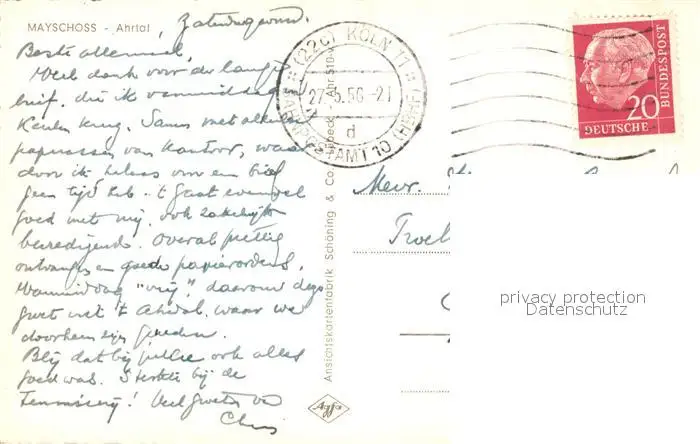 MAYSCHOSS - Ahrtal, Zaterdagavond.
Beste allemaal,
Veel dank voor de lange
brief, die ik vanmiddag in
Keulen kreeg. Samen met allerlei
paperassen van kantoor, waar
door ik helaas voor een brief
geen tijd heb. 't Gaat evenwel
goed met mij, ook zakelijk
bevredigend. Overal prettig
ontvangst en goede papierorders.
Vanmiddag "vrij", daarom deze
groet uit 't Ahrdal, waar we
doorheen zijn gereden.
Blij dat bij jullie ook alles
goed was. Sterkte bij de
! Veel groeten van
Chris
(22c) KÖLN 11
27.5.56-21
d
Ansichtskartenfabrik Schöning & Co., Lübeck
Agfa
20
DEUTSCHE
BUNDESPOST
Mevr.
privacy protection
Datenschutz